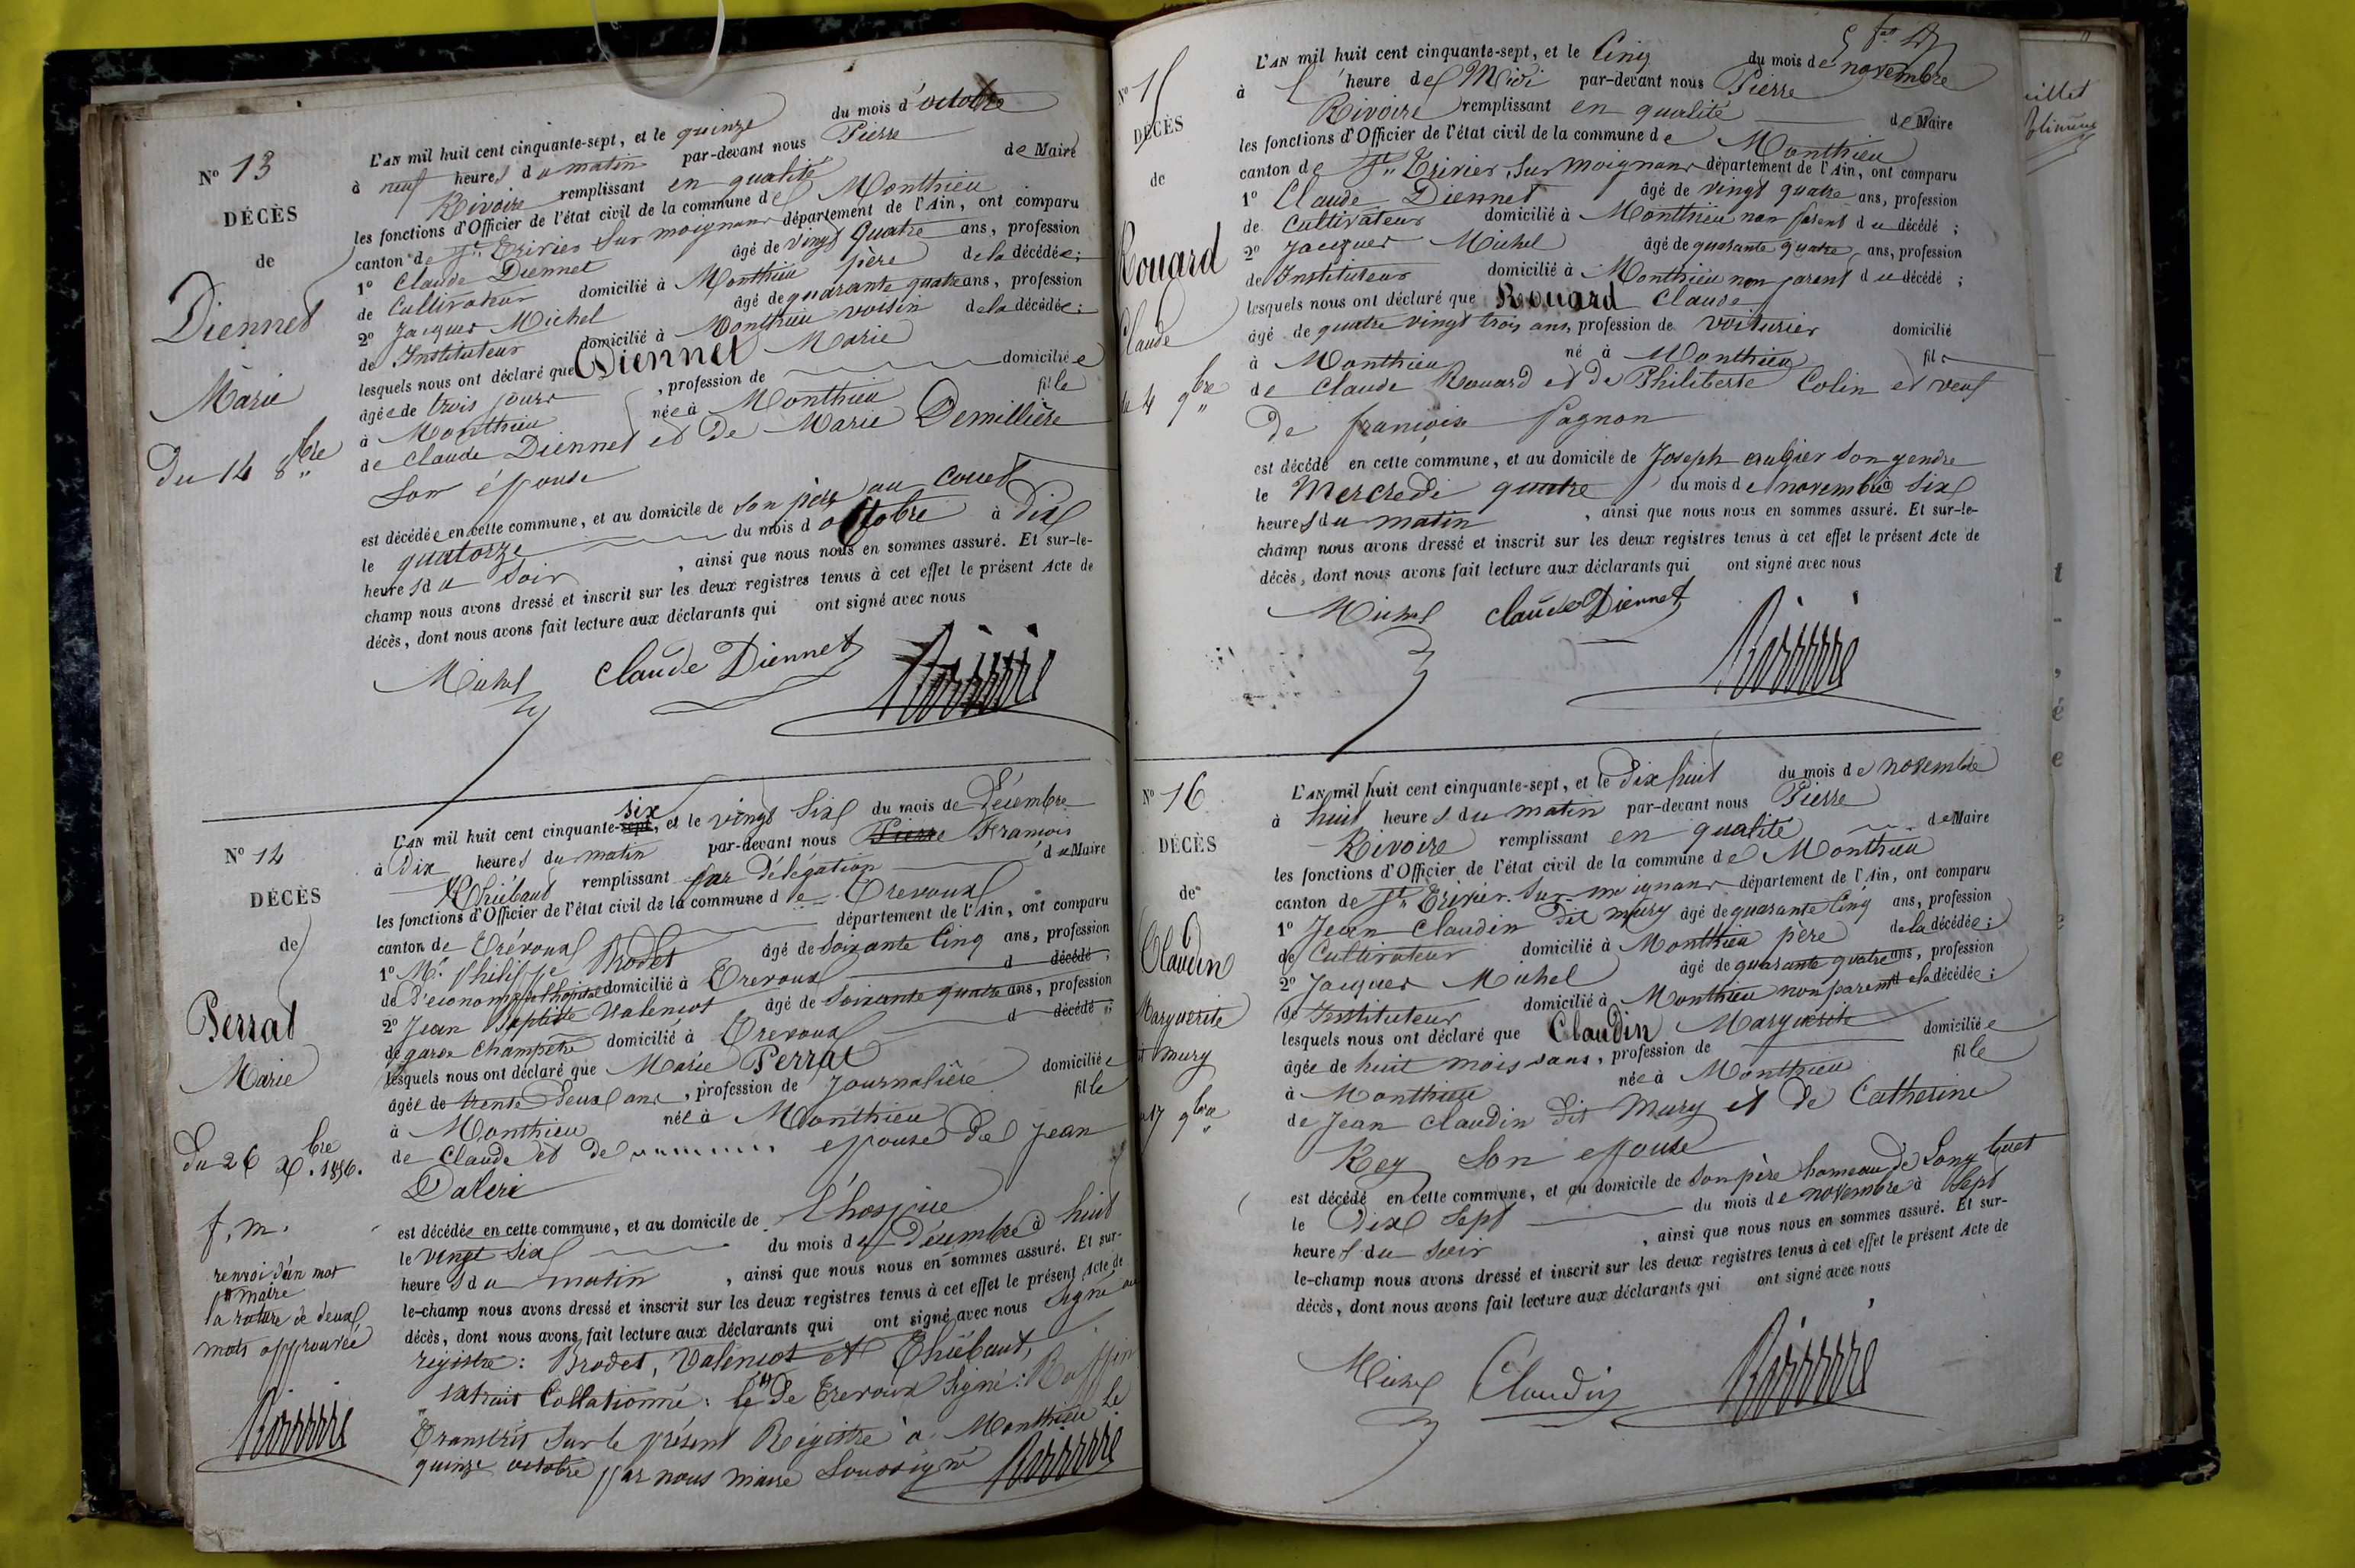 N° 13
DÉCÈS
de
Diennet
Marie
Du 14 8bre
L'AN mil huit cent cinquante-sept, et le quinze du mois d'octobre
à neuf heures du matin par-devant nous Pierre
Rivoire remplissant en qualité de Maire
les fonctions d'Officier de l'état civil de la commune de Monthieu
canton de St. Trivier sur moignans département de l'Ain, ont comparu
1° Claude Diennet âgé de vingt quatre ans, profession
de Cultivateur domicilié à Monthieu père de la décédée;
2° Jacques Michel âgé de quarante quatre ans, profession
de Instituteur domicilié à Monthieu voisin de la décédée;
lesquels nous ont déclaré que Diennet Marie
âgée de trois jours, profession de domiciliée
à Monthieu née à Monthieu fille
de Claude Diennet et de Marie Demillière
son épouse
est décédée en cette commune, et au domicile de son père au Couet
le quatorze du mois d'octobre à dix
heures du soir, ainsi que nous nous en sommes assuré. Et sur-le-
champ nous avons dressé et inscrit sur les deux registres tenus à cet effet le présent Acte de
décès, dont nous avons fait lecture aux déclarants qui ont signé avec nous
Michel Claude Diennet Rivoire
N° 14
DÉCÈS
de
Perrat
Marie
Du 26 Xbre. 1856.
f. m.
renvoi d'un mot
maire
la rature de deux
mots approuvée
Rivoire
L'AN mil huit cent cinquante-sept six, et le vingt six du mois de Décembre
à Dix heures du matin par-devant nous Pierre François
Thiébaut remplissant par délégation du Maire
les fonctions d'Officier de l'état civil de la commune de Trevoux
canton de Trévoux département de l'Ain, ont comparu
1° Mr. Philippe Brodet âgé de soixante cinq ans, profession
de d'econome de l'hopital domicilié à Trevoux d décédé;
2° Jean Baptiste Valensot âgé de soixante quatre ans, profession
de garde champêtre domicilié à Trevoux d décédé;
lesquels nous ont déclaré que Marie Perrat
âgée de trente deux ans, profession de Journalière domiciliée
à Monthieu née à Monthieu fille
de Claude et de epouse de Jean
est décédée en cette commune, et au domicile de l'hospice
le vingt six du mois de Décembre à huit
heures du matin, ainsi que nous nous en sommes assuré. Et sur-
le-champ nous avons dressé et inscrit sur les deux registres tenus à cet effet le présent Acte de
décès, dont nous avons fait lecture aux déclarants qui ont signé avec nous signé au
registre: Brodet, Valensot et Thiébaut,
extrait Collationné: le de Trevoux signé: Ruffin
Transcrit sur le présent Régistre à Monthieu le
quinze octobre par nous maire soussigné Rivoire
5 fos
N° 15
DÉCÈS
de
Rouard
Claude
du 4 9bre
L'AN mil huit cent cinquante-sept, et le Cinq du mois de novembre
à l'heure de Midi par-devant nous Pierre
Rivoire remplissant en qualité de Maire
les fonctions d'Officier de l'état civil de la commune de Monthieu
canton de St. Trivier sur moignans département de l'Ain, ont comparu
1° Claude Diennet âgé de vingt quatre ans, profession
de Cultivateur domicilié à Monthieu non parent du décédé;
2° Jacques Michel âgé de quarante quatre ans, profession
de Instituteur domicilié à Monthieu non parent du décédé;
lesquels nous ont déclaré que Rouard Claude
âgé de quatre vingt trois ans, profession de voiturier domicilié
à Monthieu né à Monthieu fils
de Claude Rouard et de Philiberte Colin et veuf
de françoise Pagnon
est décédé en cette commune, et au domicile de Joseph augier son gendre
le Mercredi quatre du mois de novembre à six
heures du matin, ainsi que nous nous en sommes assuré. Et sur-le-
champ nous avons dressé et inscrit sur les deux registres tenus à cet effet le présent Acte de
décès, dont nous avons fait lecture aux déclarants qui ont signé avec nous
Michel Claude Diennet Rivoire
N° 16
DÉCÈS
de
Claudin
Marguerite
dit mury
17 9bre
L'AN mil huit cent cinquante-sept, et le dix huit du mois de novembre
à huit heures du matin par-devant nous Pierre
Rivoire remplissant en qualité de Maire
les fonctions d'Officier de l'état civil de la commune de Monthieu
canton de St. Trivier sur moignans département de l'Ain, ont comparu
1° Jean Claudin dit mury âgé de quarante cinq ans, profession
de Cultivateur domicilié à Monthieu père de la décédée;
2° Jacques Michel âgé de quarante quatre ans, profession
de Instituteur domicilié à Monthieu non parent de la décédée;
lesquels nous ont déclaré que Claudin Marguerite
âgée de huit mois ans, profession de domiciliée
à Monthieu née à Monthieu fille
de Jean Claudin dit Mury et de Catherine
Rey son epouse
est décédé en cette commune, et au domicile de son père hameau de Long
le dix sept du mois de novembre à sept
heures du soir, ainsi que nous nous en sommes assuré. Et sur-
le-champ nous avons dressé et inscrit sur les deux registres tenus à cet effet le présent Acte de
décès, dont nous avons fait lecture aux déclarants qui ont signé avec nous
Michel Claudin Rivoire